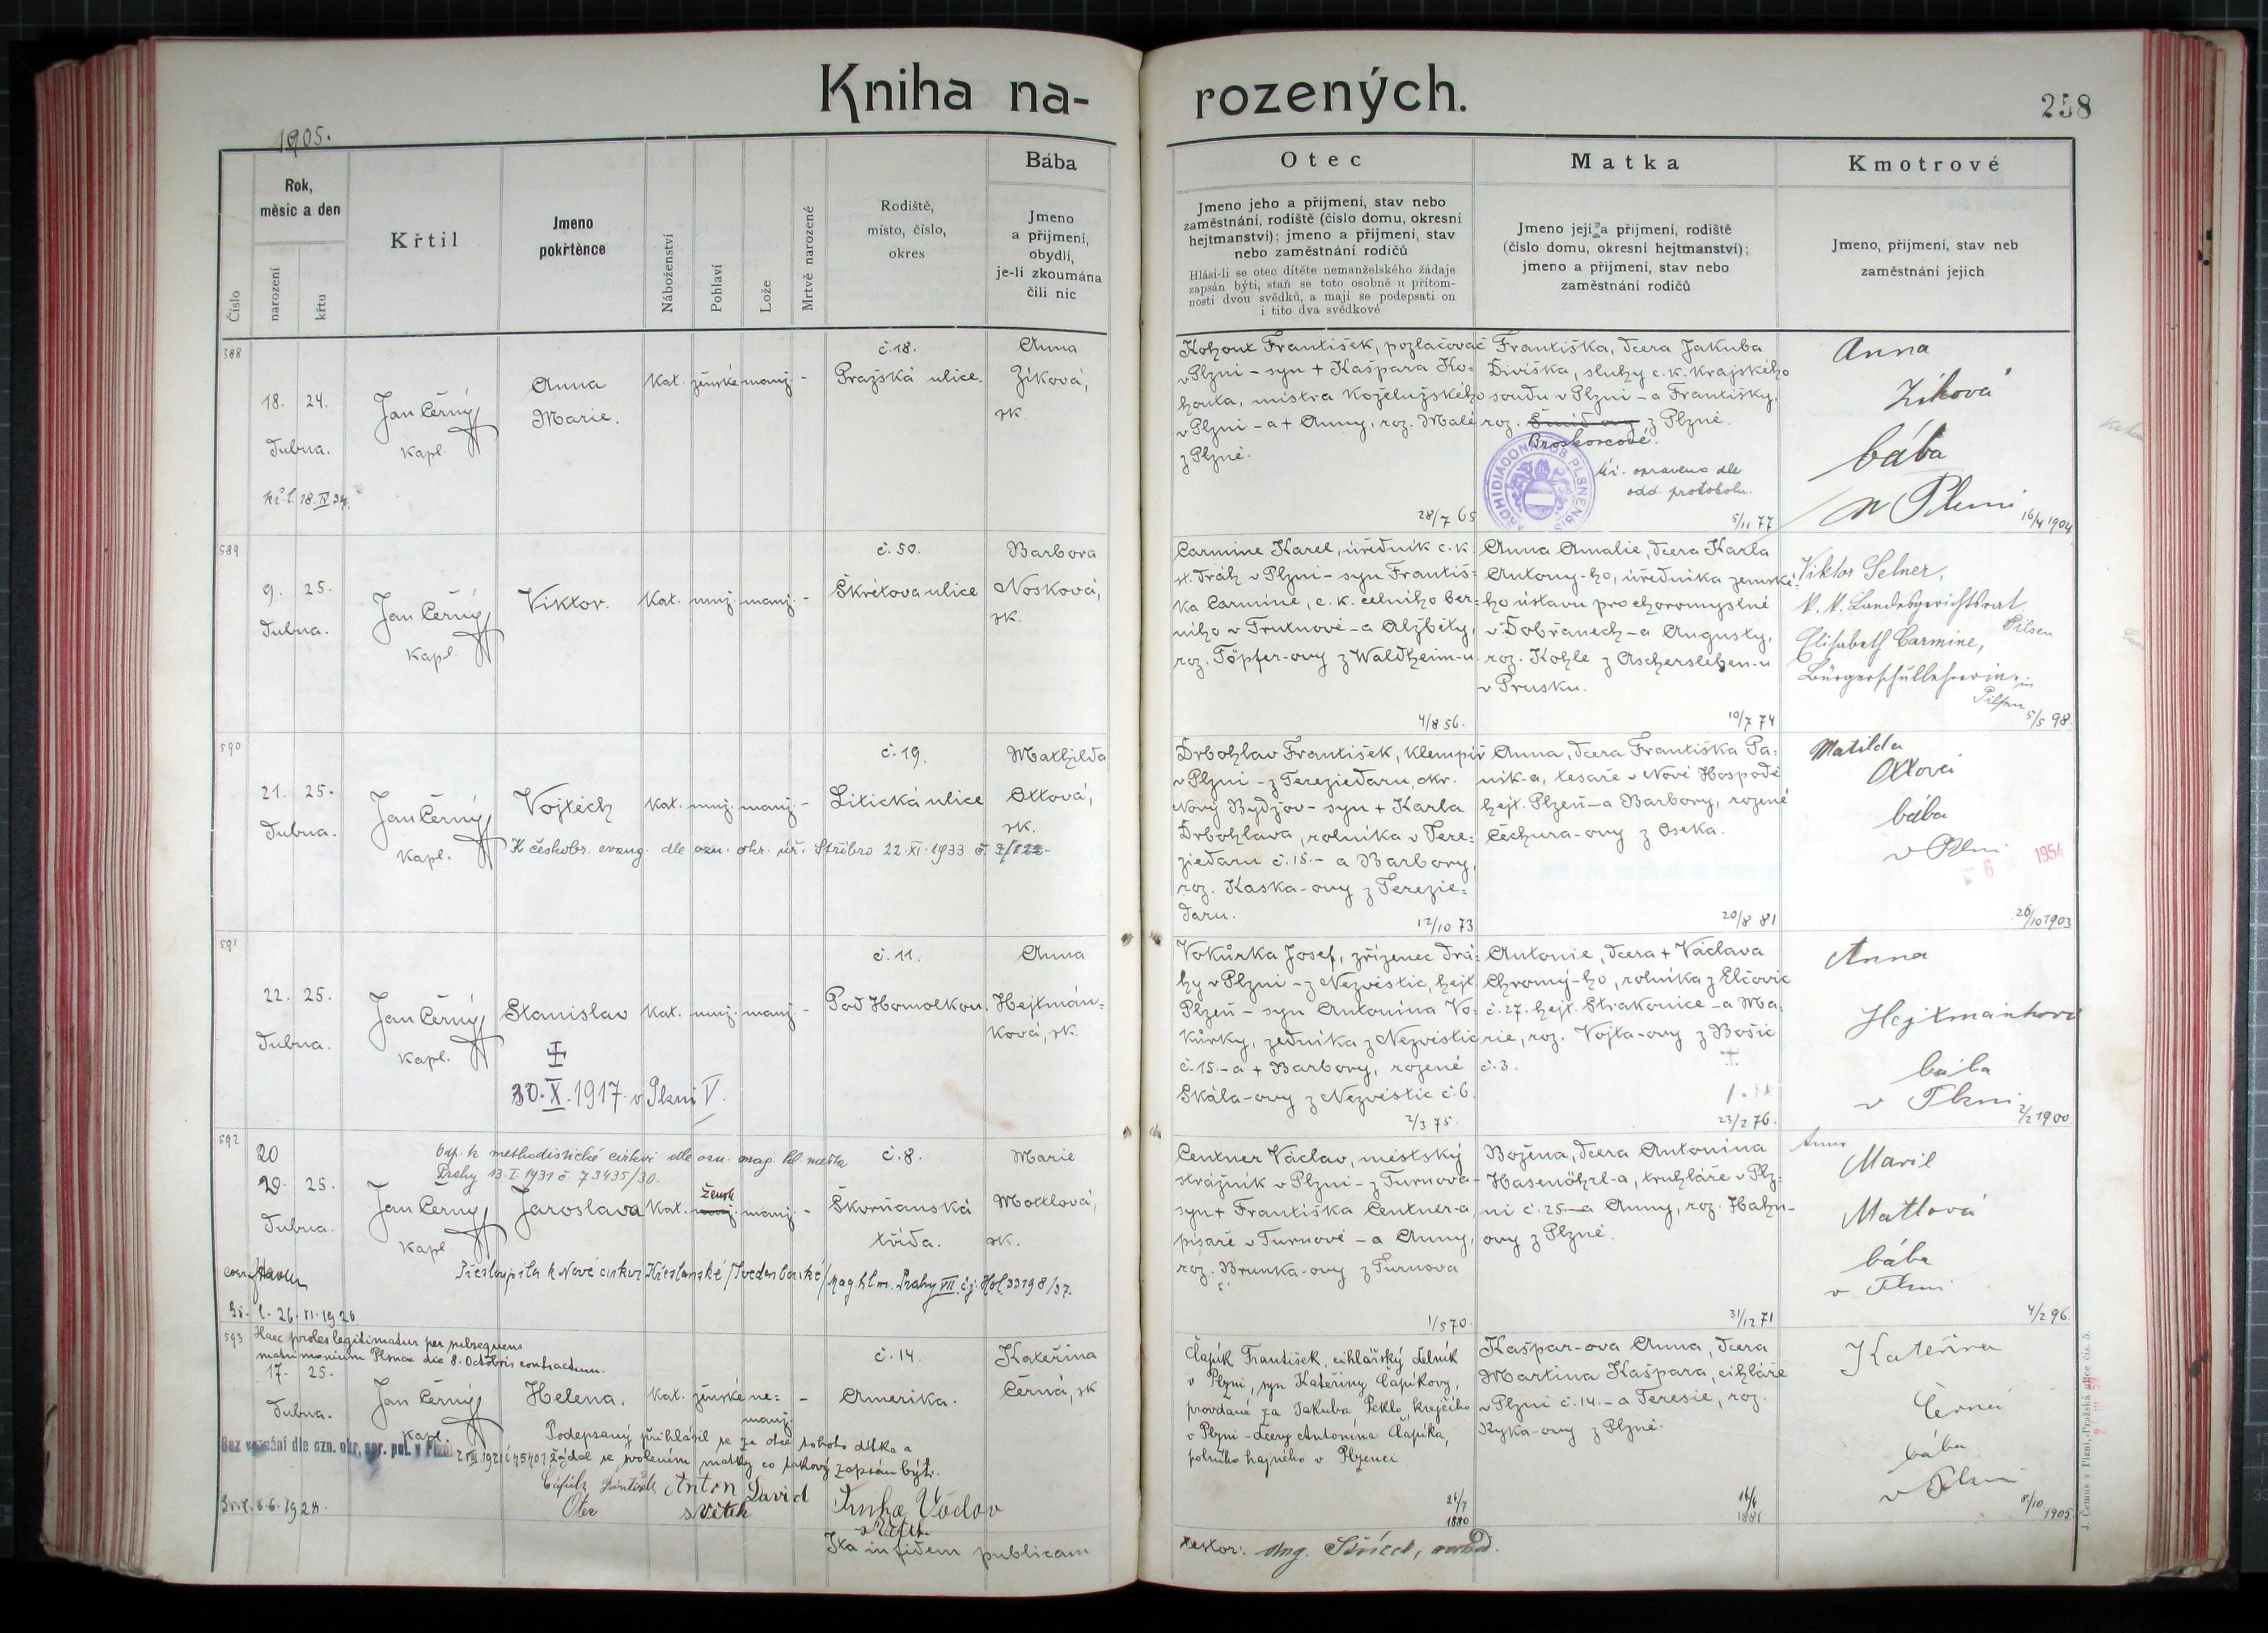 Kniha na-
rozených.
258
1905.
Číslo
Rok,
měsíc a den
narození
křtu
Křtil
Jmeno
pokřtěnce
Náboženství
Pohlaví
Lože
Mrtvě narozené
Rodiště,
místo, číslo,
okres
Bába
Jmeno
a přijmení,
obydlí,
je-li zkoumána
čili nic
Otec
Jmeno jeho a přijmení, stav nebo
zaměstnání, rodiště (číslo domu, okresní
hejtmanství); jmeno a přijmení, stav
nebo zaměstnání rodičů
Hlásí-li se otec dítěte nemanželského žádaje
zapsán býti, staň se toto osobně u přítom-
nosti dvou svědků, a mají se podepsati on
i tito dva svědkové
Matka
Jmeno její a přijmení, rodiště
(číslo domu, okresní hejtmanství);
jmeno a přijmení, stav nebo
zaměstnání rodičů
Kmotrové
Jméno, přijmení, stav neb
zaměstnání jejich
588
18. 24.
Dubna.
kř. l. 18.IV.34.
Jan Černý
kapl.
Anna
Marie.
kat. ženské manž. -
č. 18.
Pražská ulice.
Anna
Zíková,
zk.
Kohout František, pozlačovač
v Plzni - syn + Kašpara Ko-
houta, mistra koželužského
v Plzni - a + Anny, roz. Malé
z Plzně.
28/7 65
Františka, dcera Jakuba
Diviška, sluhy c. k. krajského
soudu v Plzni - a Františky,
roz. z Plzně.
Broskovcové.
opraveno dle
odd. protokolu.
ARCHIDIACONATUS PLSNENSIS
5/11 77
Anna
Zíková
bába
v Plzni
16/4 1904
589
9. 25.
Dubna.
Jan Černý
kapl.
Viktor.
kat. muž. manž. -
č. 50.
Škrétova ulice
Barbora
Nosková,
zk.
Carmine Karel, úředník c. k.
st. dráh v Plzni - syn Františ-
ka Carmine, c. k. celního ber-
ního v Trutnově - a Alžběty,
roz. Töpfer-ovy z Waldheim-u.
4/8 56.
Anna Amalie, dcera Karla
Antony-ho, úředníka zemské-
ho ústavu pro choromyslné
v Dobřanech - a Augusty,
roz. Kohle z Aschersleben-u
v Prusku.
10/7 74
Viktor Selner,
k. k. Landesgerichtsrat
Pilsen
Elisabeth Carmine,
Bürgerschullehrerin in
Pilsen
5/5 98.
590
21. 25.
Dubna.
Jan Černý
kapl.
Vojtěch
kat. muž. manž. -
K českobr. evang. dle ozn. okr. úř. Stříbro 22.XI.1933 č.
č. 19.
Litická ulice
Mathilda
Ottová,
zk.
Drbohlav František, klempíř
v Plzni - z Tereziedaru, okr.
Nový Bydžov - syn + Karla
Drbohlava, rolníka v Tere-
ziedaru č. 15. - a Barbory,
roz. Kaska-ovy z Terezie-
daru.
12/10 73
Anna, dcera Františka Pa-
nik-a, tesaře v Nové Hospodě
hejt. Plzeň - a Barbory, rozené
Čechura-ovy z Oseka.
20/8 81
Matilda
Ottová
bába
v Plzni
6 1954
26/10 1903
591
22. 25.
Dubna.
Jan Černý
kapl.
Stanislav
kat. muž. manž. -
30.X.1917 v Plzni V.
č. 11.
Pod Homolkou.
Anna
Hejtmán-
ková, zk.
Vokůrka Josef, zřízenec drá-
hy v Plzni - z Nezvěstic, hejt.
Plzeň - syn Antonína Vo-
kůrky, zedníka z Nezvěstic
č. 15. - a + Barbory, rozené
Skála-ovy z Nezvěstic č. 6.
2/3 75.
Antonie, dcera + Václava
Chromý-ho, rolníka z Elčovic
č. 27. hejt. Strakonice - a Ma-
rie, roz. Vojta-ovy z Bošic
č. 3.
23/2 76.
Anna
Hejtmánková
bába
v Plzni
2/2 1900
592
20
29. 25.
Dubna.
Odp. k methodistické církvi dle ozn. mag. hl. města
Prahy 13.I.1931 č. 73435/30.
Jan Černý
kapl.
Jaroslava
kat. žensk. manž. -
č. 8.
Škvrňanská
třída.
Marie
Mottlová,
zk.
Přestoupila k Nové církvi Křesťanské /Švedenborské/ mag. hl. m. Prahy VII. čj. Hol. 33198/37.
l. 26. VI. 1926
Centner Václav, městský
strážník v Plzni - z Turnova -
syn + Františka Centner-a,
písaře v Turnově - a Anny,
roz. Brunka-ovy z Turnova
1/5 70.
Božena, dcera Antonína
Hasenöhrl-a, truhláře v Plz-
ni č. 25 - a Anny, roz. Hahn-
ovy z Plzně.
31/12 71
Anna
Marie
Mattlová
bába
v Plzni
4/2 96.
593
Haec proles legitimatur per subsequens
matrimonium Plsnae die 8. Octobris contractum.
17. 25.
Dubna.
Jan Černý
kapl.
Helena.
kat. ženské ne-
manž. -
č. 14.
Amerika.
Kateřina
Černá, zk
Bez vyznání dle ozn. okr. spr. pol. v Plzni
Podepsaný přihlásil se za otce tohoto dítka a
žádal se svolením matky co takový zapsán býti.
František
Otec
Anton David
svědek
Václav
Ita in fidem publicam
6.6.1928.
Čapík František, cihlářský dělník
v Plzni, syn Kateřiny Čapíkovy,
provdané za Jakuba Pekla, krejčího
v Plzni - dcery Antonína Čapíka,
polního hajného v Plzenci
24/7
1880
Kašpar-ova Anna, dcera
Martina Kašpara, cihláře
v Plzni č. 14. - a Teresie, roz.
Ryka-ovy z Plzně.
14/4
1881
Kateřina
Černá
bába
v Plzni
8/10 1905
J. Čemus v Plzni, Pražská ulice čís. 5.